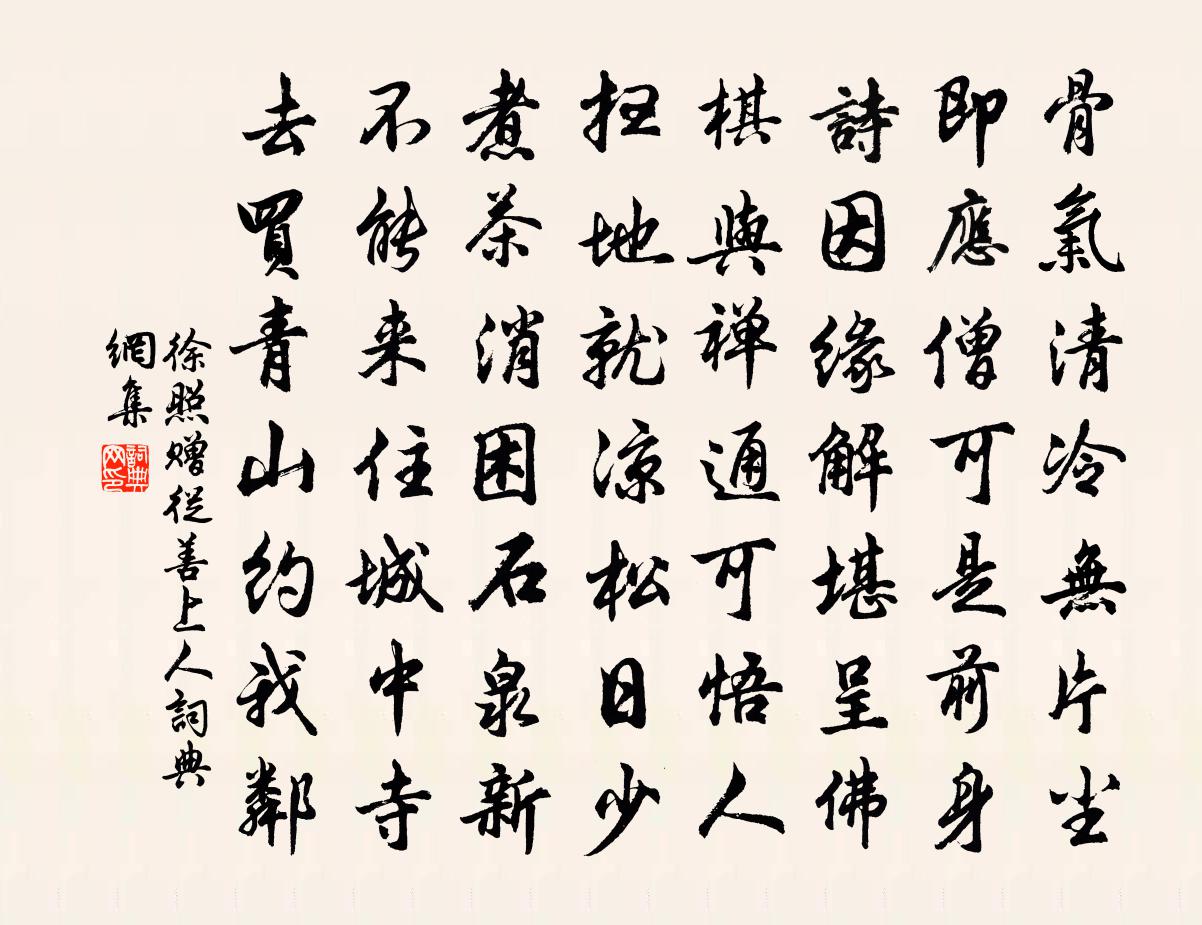 骨氣清冷無片尘
即應僧可是前身
詩因緣解堪呈佛
棋與禅通可悟人
扫地就凉松日少
煮茶消困石泉新
不能来住城中寺
去買青山約我鄰
徐照赠從善上人詞典
網集
詞典
网印